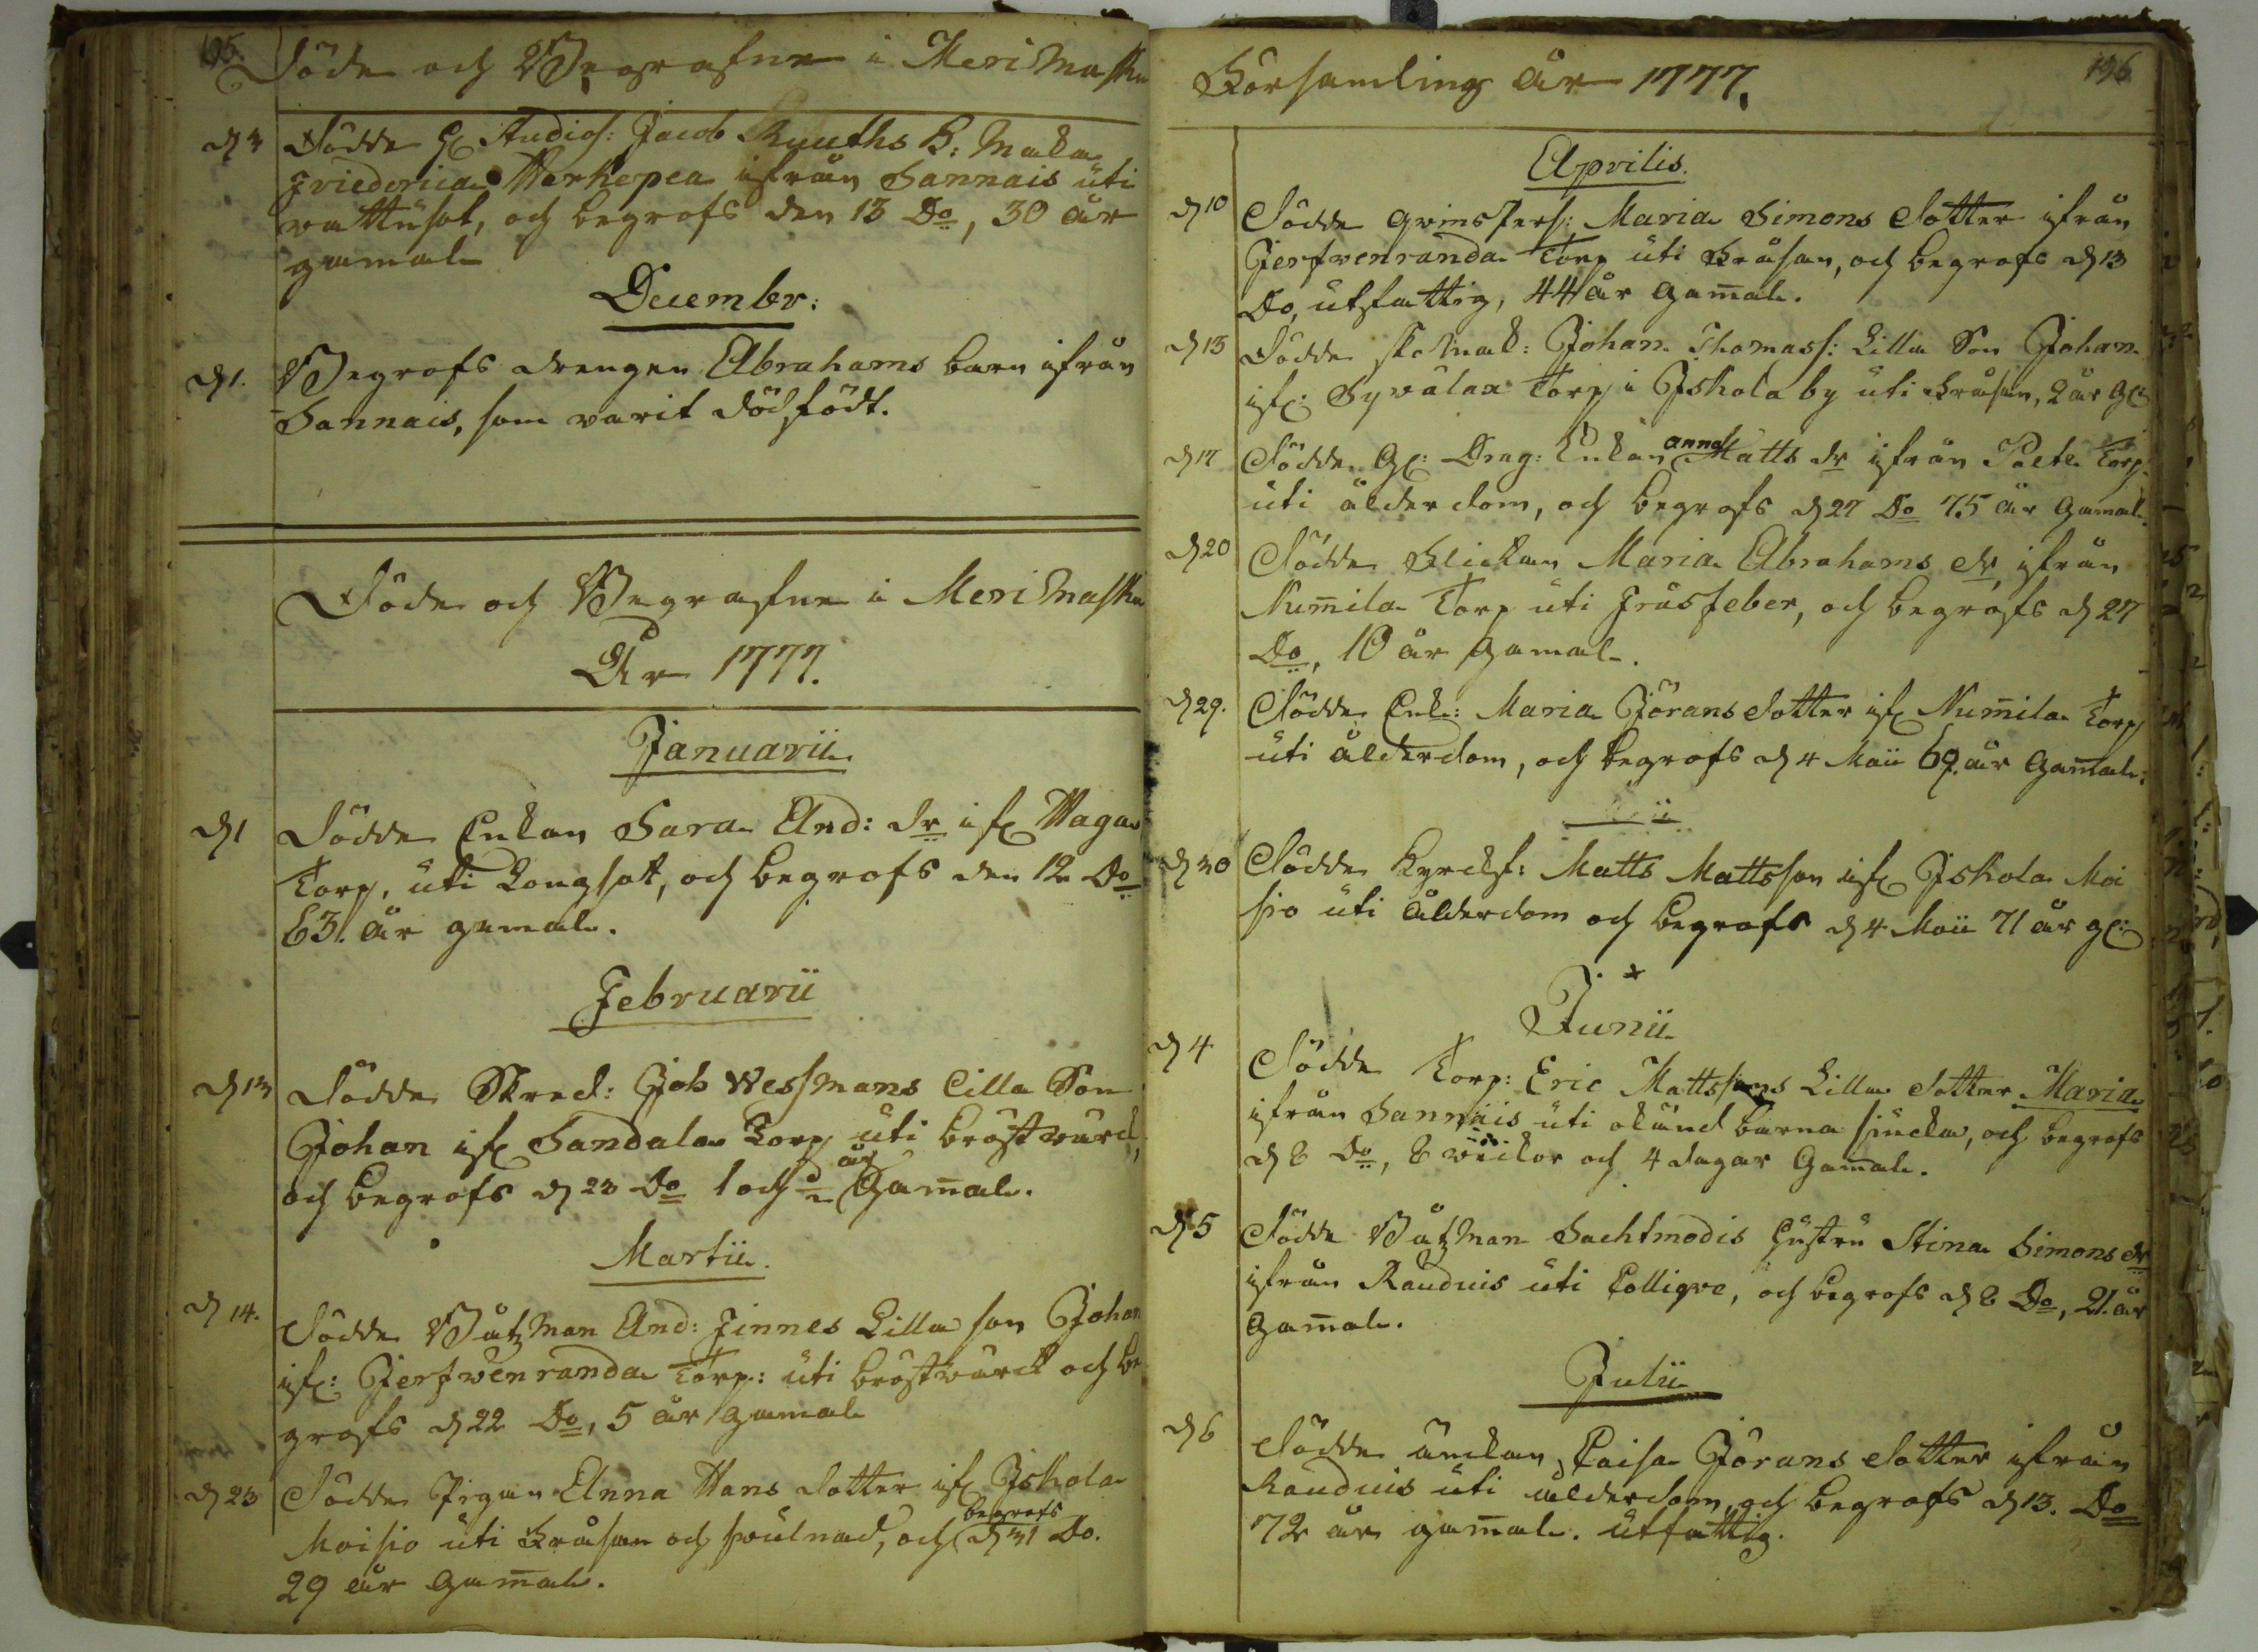 195.
Döde och Begrafne i Meri Masku
d 3 Dödde H: Studios: Jacob Knuuths K: Maka
Friedrica Werkopea ifrån Sannais uti
vattusot, och begrofs den 13 Do, 30 år
gamal
Decembr:
d 1. Begrofs drengen Abrahams barn ifrån
Sannais, som varit dödfödt.
Döde och Begrafne i Meri Masku
År 1777.
Januarii
d 1 Dödde Enkan Sara And: dr if: Haga
Torp, uti Lungsot, och begrofs den 12 Do
63. år gamal.
Februarii
d 13 Dödde Skred: Joh Wessmans lilla Son
Johan if: Sandala Torp uti bröstvärck,
och begrofs d 23 Do 1 och 1/2 år Gamal.
Martii.
d 14. Dödde Båtzman And: Finnes Lilla son Johan
if: Jerfwenranda Torp: uti bröstvärck och be
grofs d 22 Do, 5 år gamal
d 23 Dödde Pigan Anna Hans dotter if: Iskola
Moisio uti Bråsan och svulnad, och begrofs d 31 Do.
29 år Gamal.
Församling År 1777.
196
Aprilis.
d 10 Dödde qvinsPers: Maria Simons dotter ifrån
Jerfwenranda Torp uti Bråsan, och begrofs d 13
Do, utfattig, 44 år Gamal.
d 13 Dödde Johan Thomass: Lilla Son Johan
if: Syvälax Torp i Iskola by uti Bråsan, 2 år Gl:
d 17 Dödde Gl: Drag: Enkan anna Matts dr ifrån Torp
uti ålderdom, och begrofs d 27 Do 75 år Gamal.
d 20 Dödde Flickan Maria Abrahams dr ifrån
Numila Torp uti Frusfeber, och begrofs d 27
Do, 10 år Gamal.
d 29. Dödde Enk: Maria Jörans dotter if: Numila Torp
uti ålderdom, och begrofs d 4 Maii 69. år Gamal.
d 30 Dödde Kyrckf: Matts Mattsson if: Iskola Moi
sio uti ålderdom och begrofs d 4 Maii 71 år gl:
Junii
d 4 Dödde Torp: Eric Mattssons Lilla dotter Maria
ifrån Sannais uti okänd barna siucka, och begrofs
d 8 Do, 8 wickor och 4 dagar Gamal.
d 5 Dödde Båtzman Sachtmodis Hustru Stina Simons dr
ifrån Raudnis uti Collique, och begrofs d 8 Do, 21. år
Gamal.
Julii
d 6 Dödde änckan Caisa Jörans dotter ifrån
Raudnis uti ålderdom, och begrofs d 13. Do
72 år gamal. utfattig.